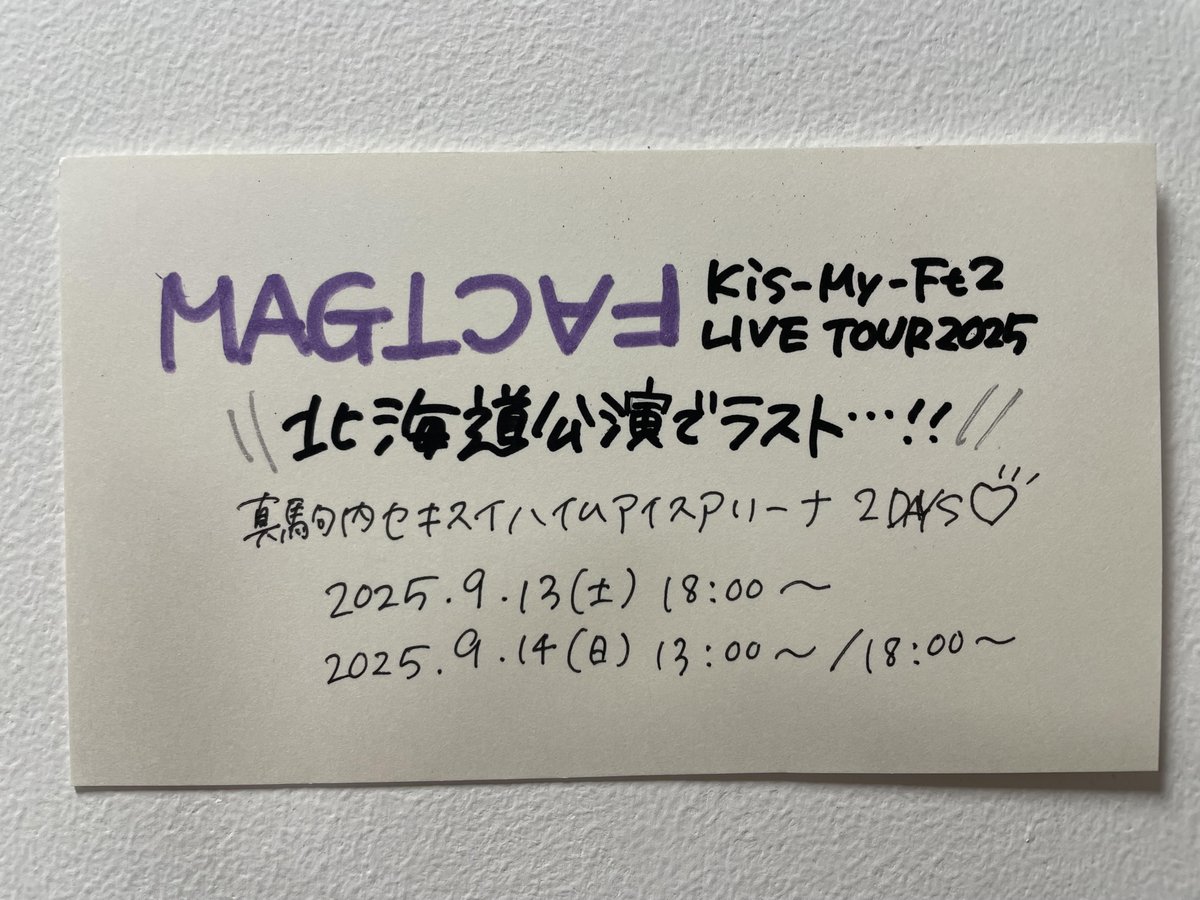 MAGFACT
Kis-My-Ft2
LIVE TOUR 2025
\\北海道公演でラスト…!!//
真駒内セキスイハイムアイスアリーナ 2DAYS♡
2025.9.13(土) 18:00～
2025.9.14(日) 13:00～/18:00～